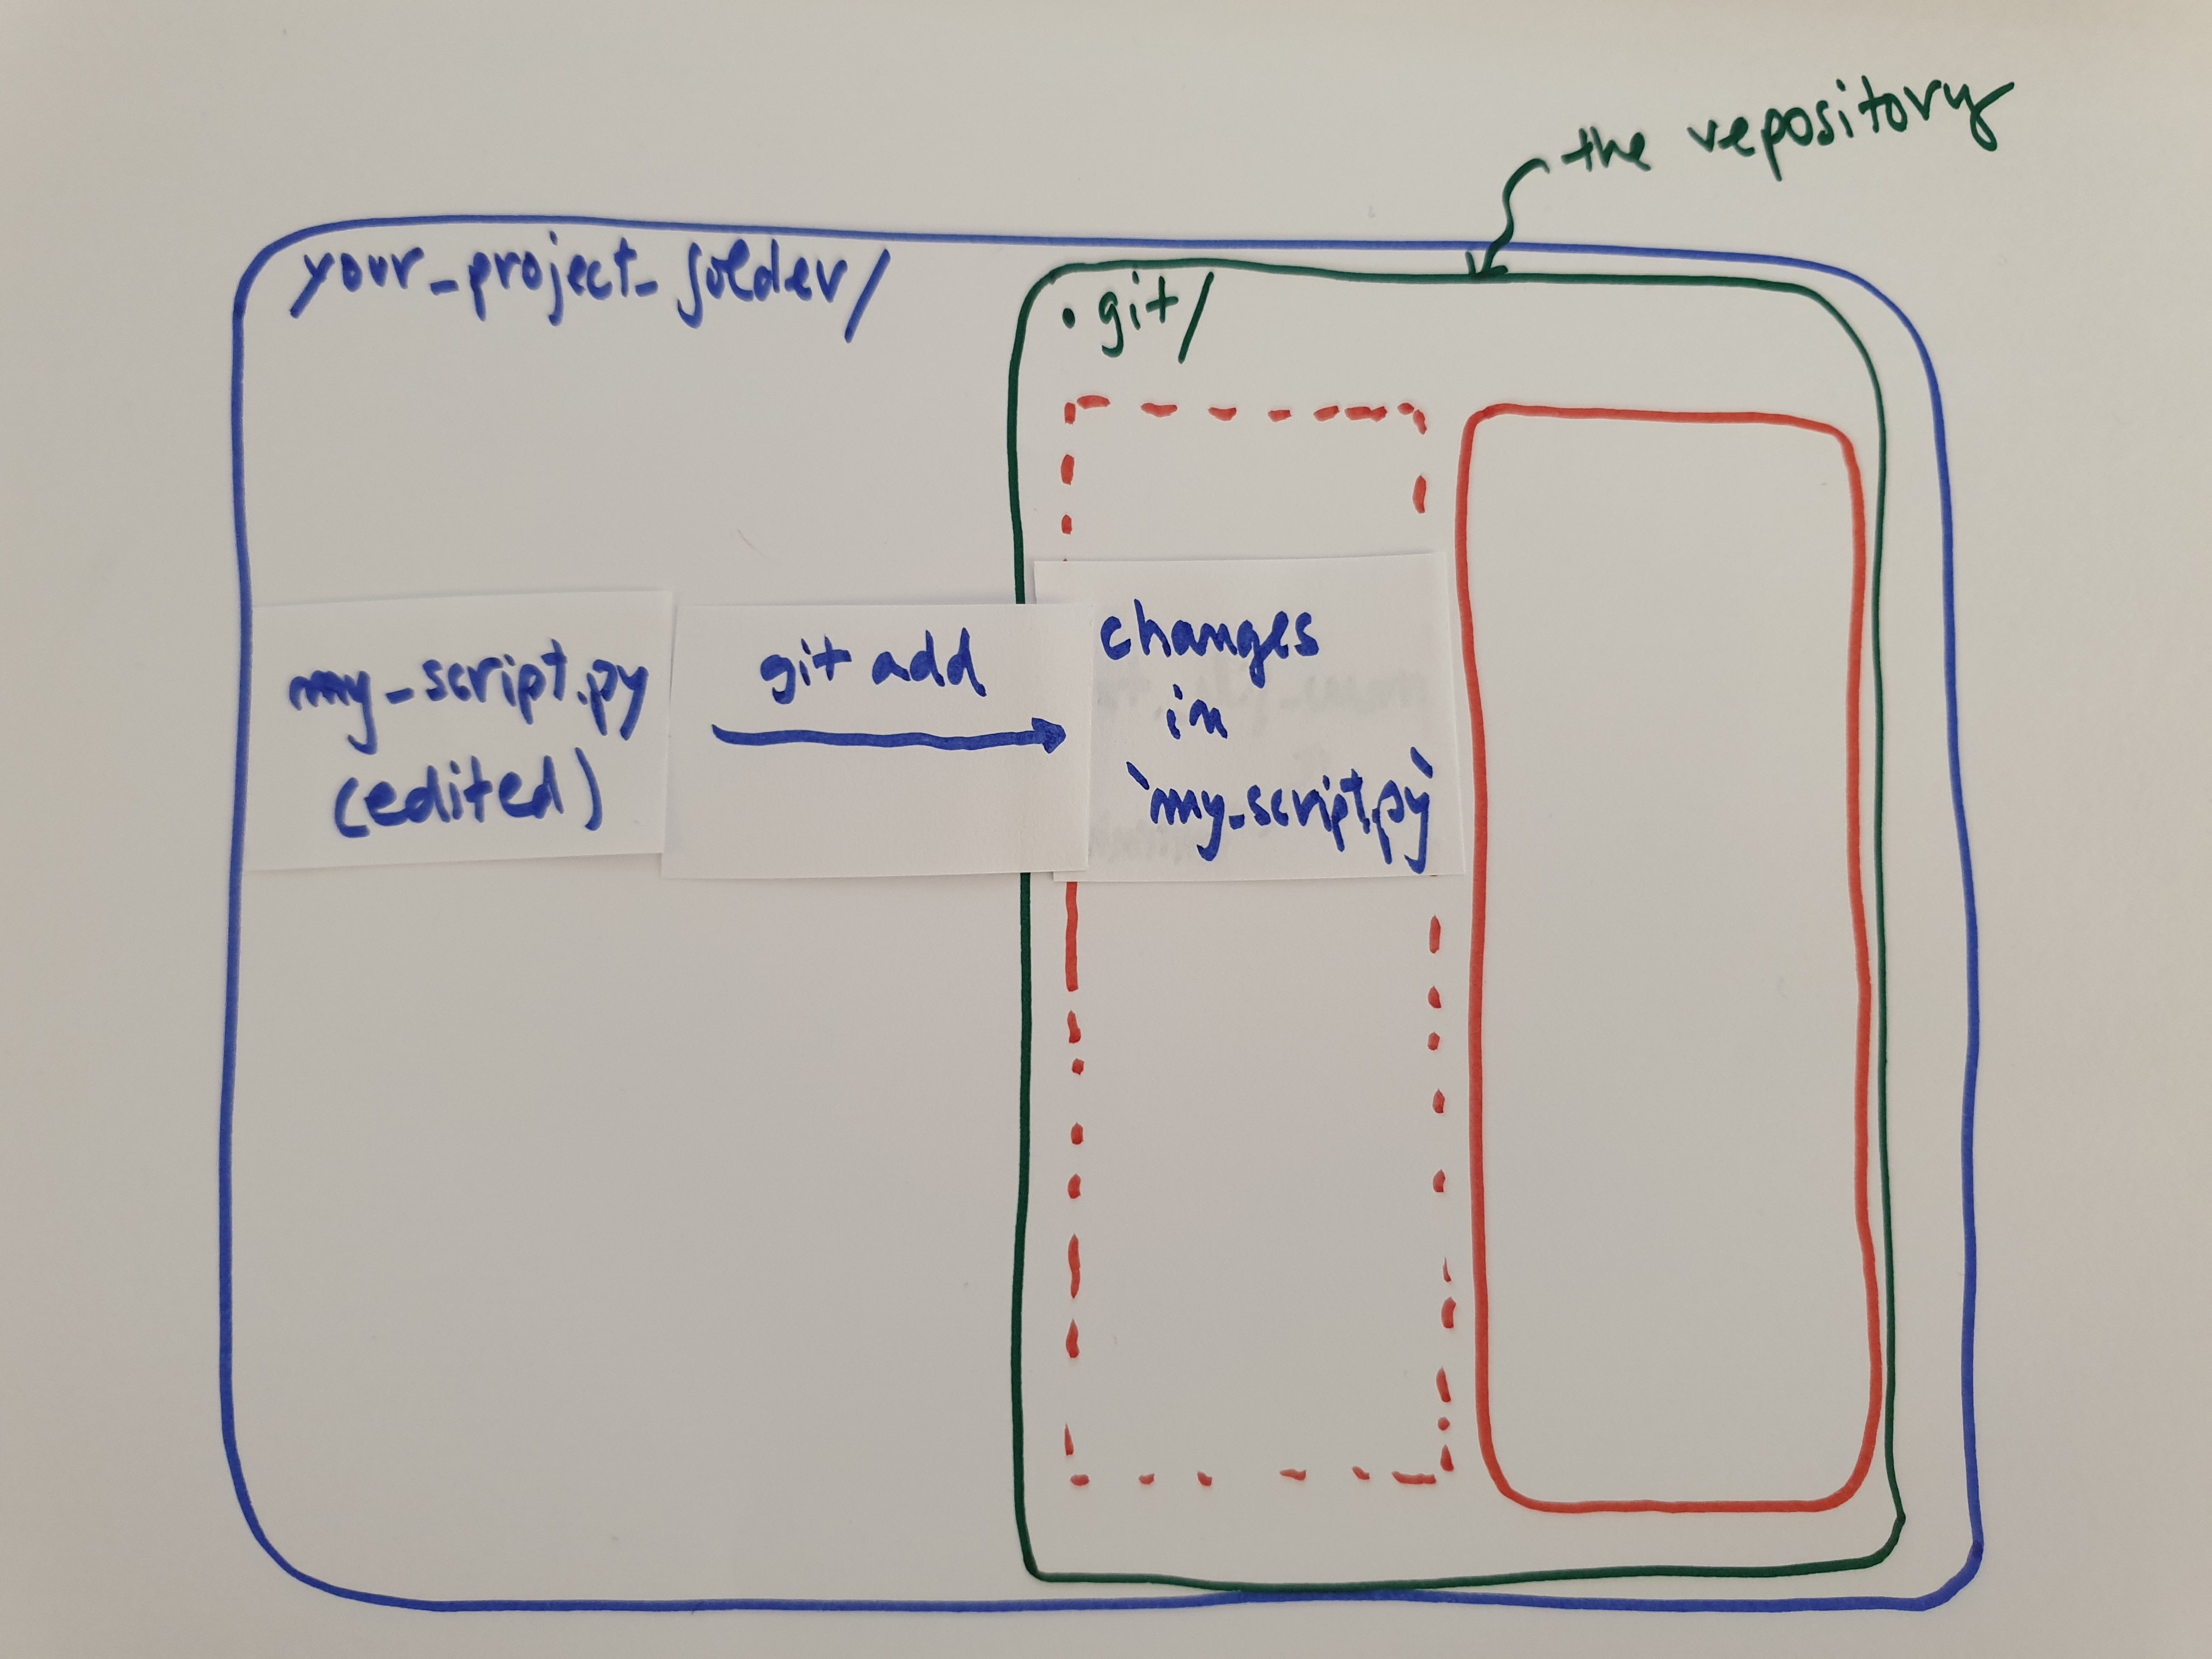 the repository
your_project_folder/
.git/
my_script.py
(edited)
git add
changes
in
`my_script.py`